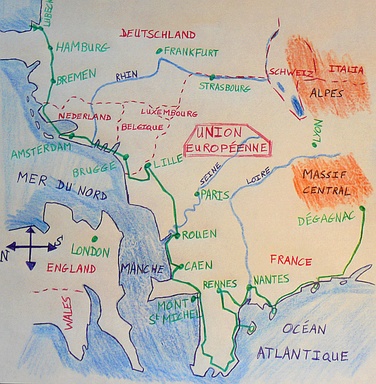 LUBECK
DEUTSCHLAND
HAMBURG
FRANKFURT
BREMEN
RHIN
STRASBOURG
SCHWEIZ
ITALIA
ALPES
NEDERLAND
LUXEMBOURG
BELGIQUE
UNION
EUROPÉENNE
LYON
AMSTERDAM
BRUGGE
LILLE
SEINE
LOIRE
MASSIF
CENTRAL
MER DU NORD
PARIS
DÉGAGNAC
ROUEN
N
S
LONDON
ENGLAND
MANCHE
CAEN
FRANCE
RENNES
NANTES
WALES
MONT
ST MICHEL
OCÉAN
ATLANTIQUE